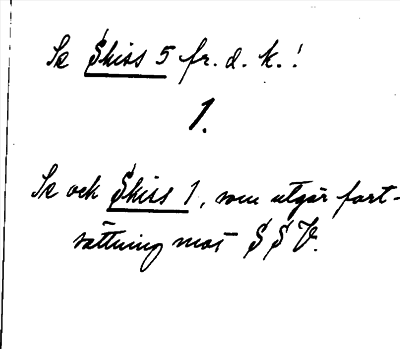 Se Skiss 5 fr. d. k.!
1.
Se och Skiss 1, som utgår fort-
sättning mot S S V.